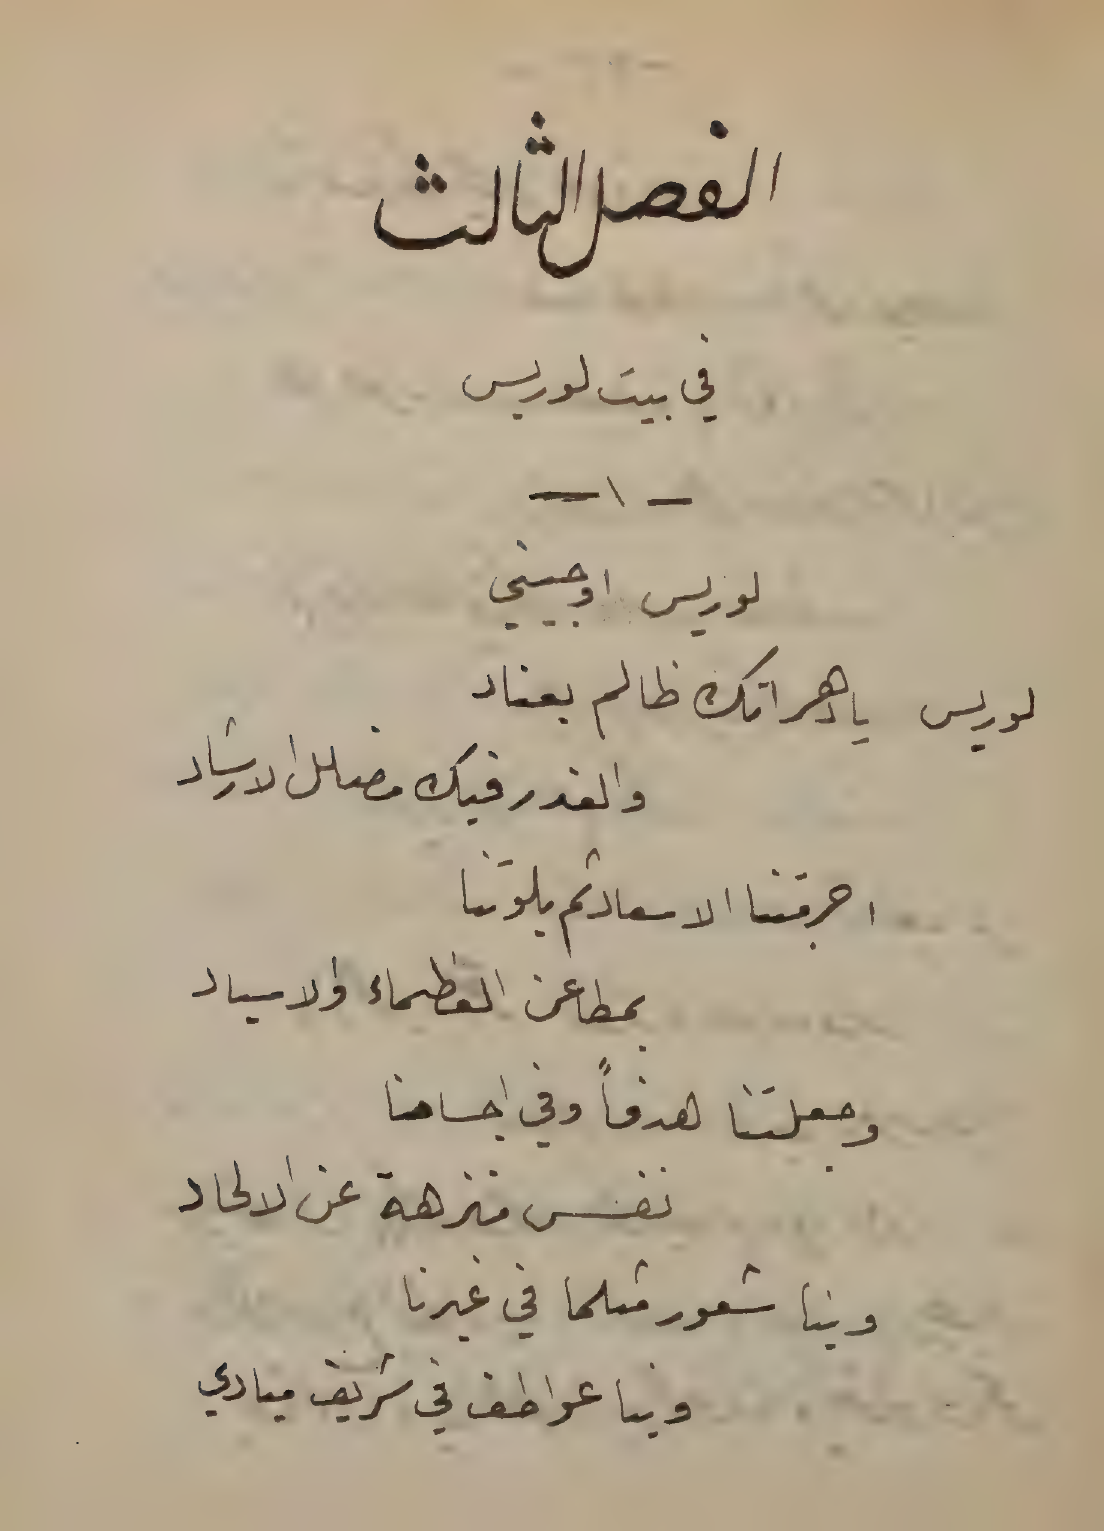 الفصل الثالث
في بيت لوريس
— ١ —
لوريس اوجيني
لوريس يا دهر انك ظالم بعناد
والغدر فيك مضلل الارشاد
احرقتنا الاسعاد ثم بلوتنا
بمطاعن العظماء والاسياد
وجعلتنا هدفاً وفي اجسامنا
نفس منزهة عن الالحاد
وبنا شعور مثلما في غيرنا
وبنا عواطف في شريف مبادي